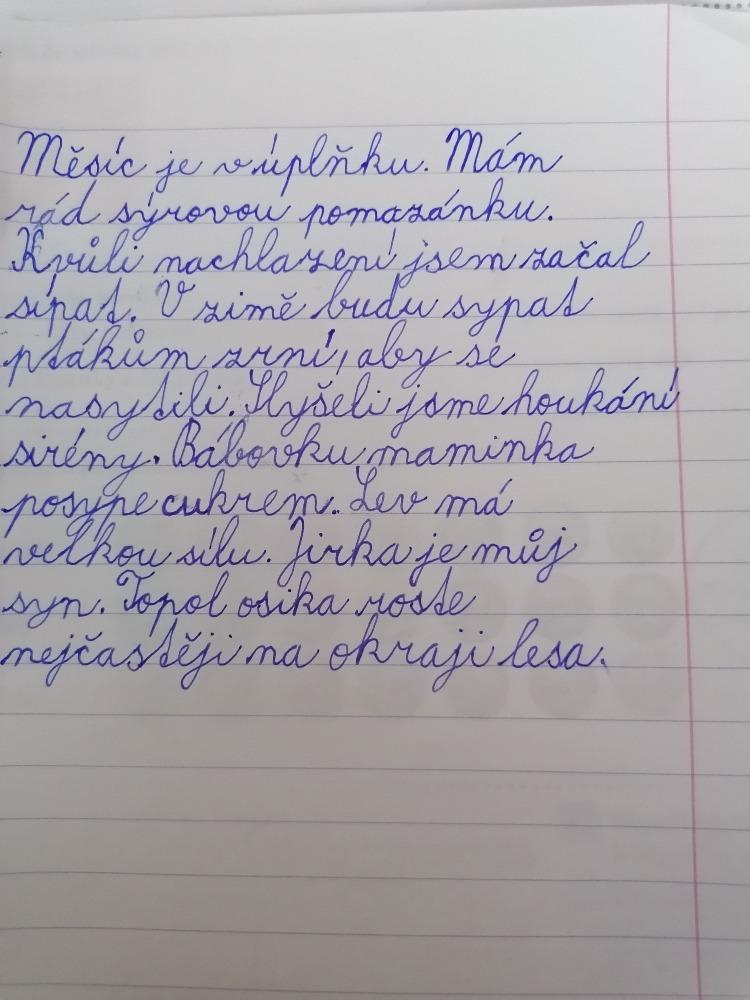 Měsíc je v úplňku. Mám
rád sýrovou pomazánku.
Kvůli nachlazení jsem začal
sípat. V zimě budu sypat
ptákům zrní, aby se
nasytili. Slyšeli jsme houkání
sirény. Bábovku maminka
posype cukrem. Lev má
velkou sílu. Jirka je můj
syn. Topol osika roste
nejčastěji na okraji lesa.